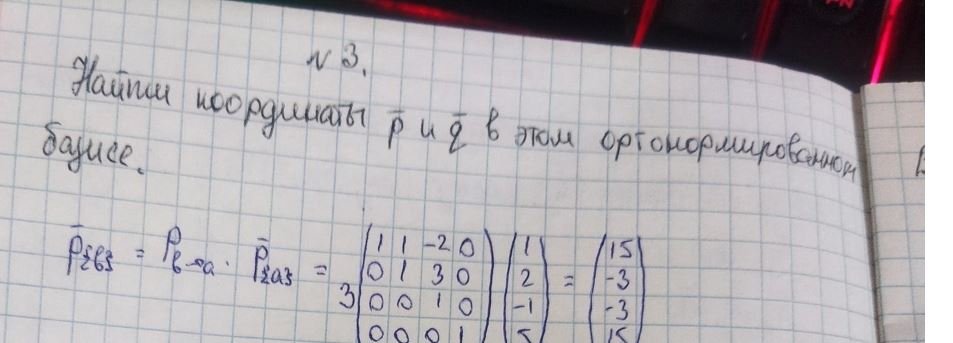 № 3.
Найти координаты p̄ и q̄ в этом ортонормированном
базисе.
p̄{в} = P в→a · p̄{a} = 3 (1 1 -2 0; 0 1 3 0; 0 0 1 0; 0 0 0 1) (1; 2; -1; 5) = (15; -3; -3; 15)